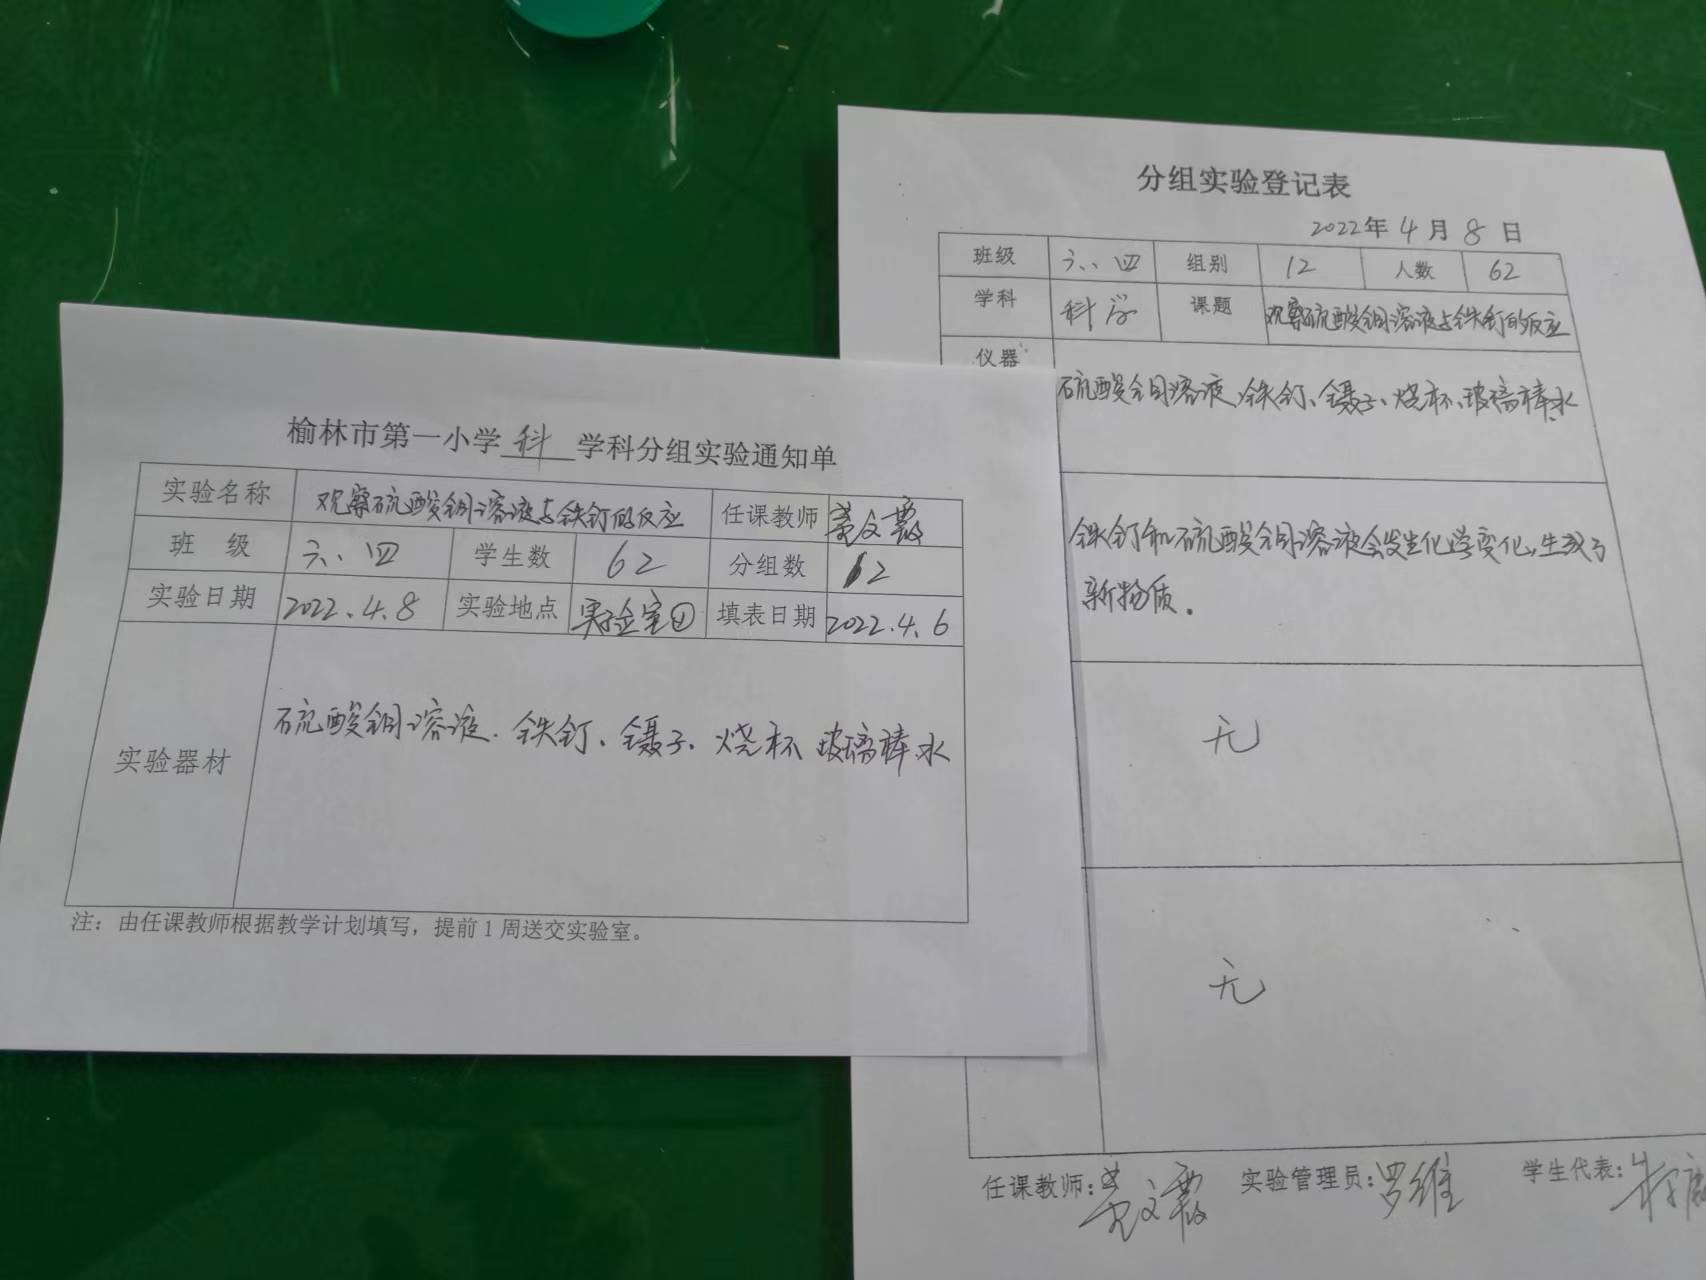 榆林市第一小学 科 学科分组实验通知单
实验名称 观察硫酸铜溶液与铁钉的反应 任课教师
班 级 六、四 学生数 62 分组数 12
实验日期 2022.4.8 实验地点 实验室① 填表日期 2022.4.6
实验器材 硫酸铜溶液、铁钉、镊子、烧杯 玻璃棒 水
注：由任课教师根据教学计划填写，提前1周送交实验室。
分组实验登记表
2022年4月8日
班级 六、四 组别 12 人数 62
学科 科学 课题 观察硫酸铜溶液与铁钉的反应
仪器 硫酸铜溶液、铁钉、镊子、烧杯、玻璃棒、水
铁钉和硫酸铜溶液会发生化学变化，生成了
新物质。
无
无
任课教师： 实验管理员：罗维 学生代表：